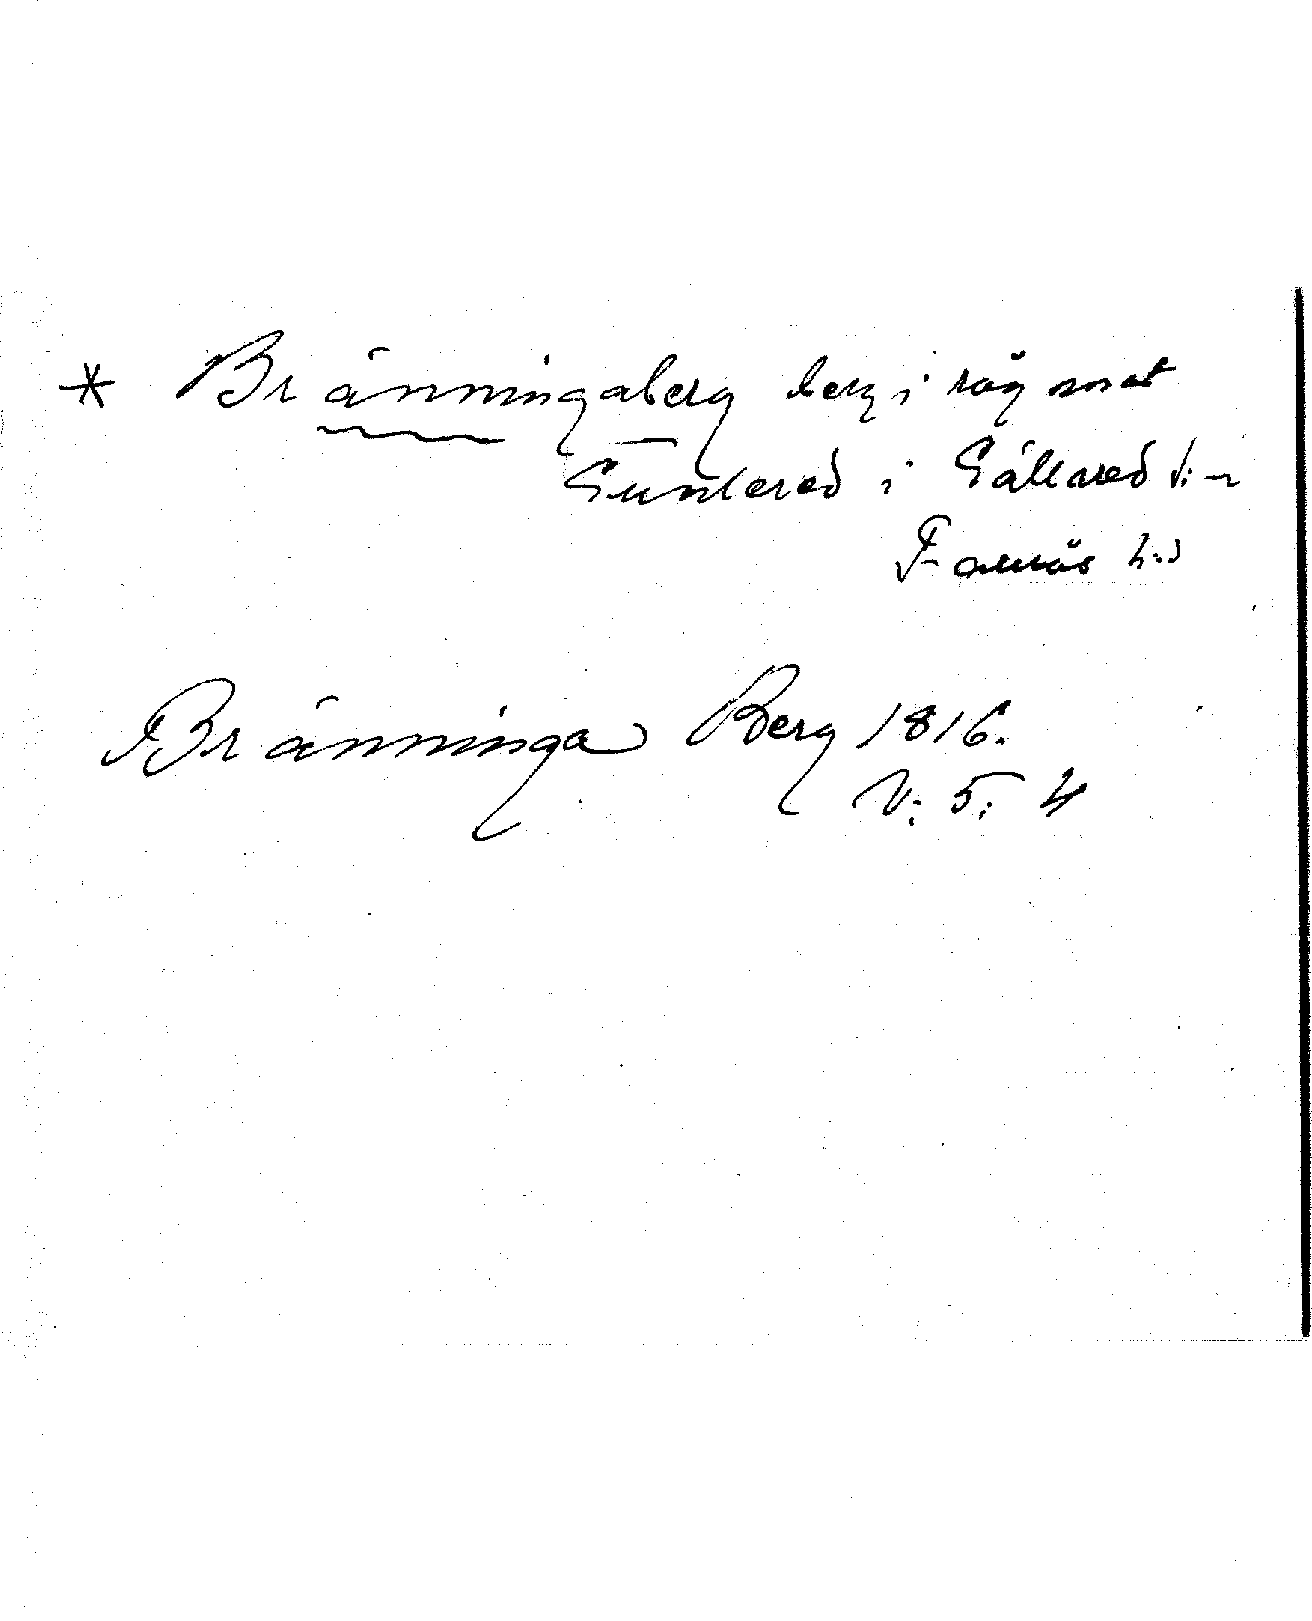 * Bränningaberg berg i råg mot
Gunnered i Gällared s:n
Faurås h:d
Bränninga Berg 1816.
V: 5: 4